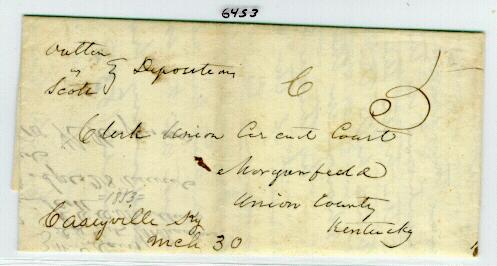 6453
Outten
vs } Depositions
Scott
C 5
Clerk Union Circuit Court
Morganfield
Union County
Kentucky
Caseyville Ky
Mch 30
=1853=